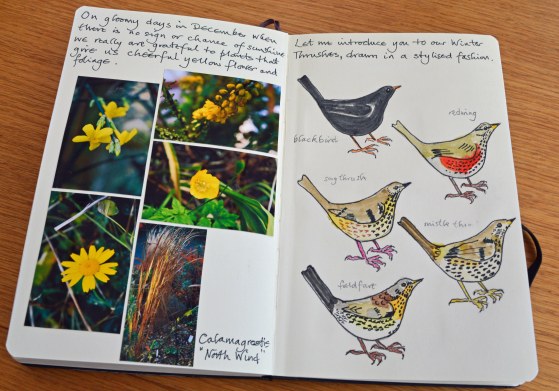 On gloomy days in December when
there is no sign or chance of sunshine
we really are grateful to plants that
give us cheerful yellow flower and
foliage.
Calamagrostis
"North Wind"
Let me introduce you to our Winter
Thrushes, drawn in a stylised fashion.
blackbird
redwing
song thrush
mistle thrush
fieldfare